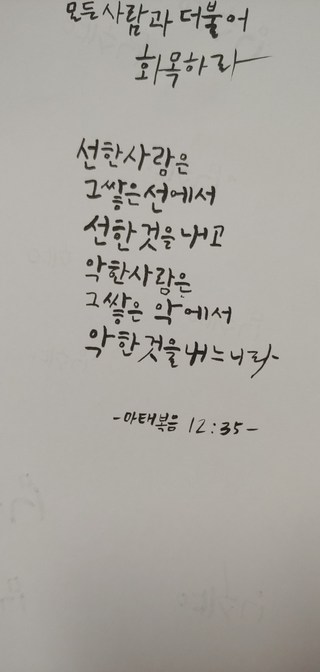 모든 사람과 더불어
화목하라
선한사람은
그쌓은선에서
선한것을내고
악한사람은
그쌓은 악에서
악한것을내느니라
-마태복음 12:35-